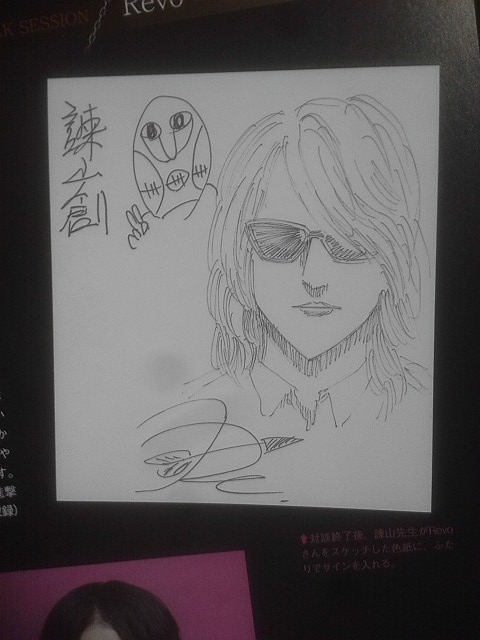 K SESSION
Revo
諫山創
い
か
や
す。
進撃
録)
⬆対談終了後、諫山先生がRevo
さんをスケッチした色紙に、ふた
りでサインを入れる。